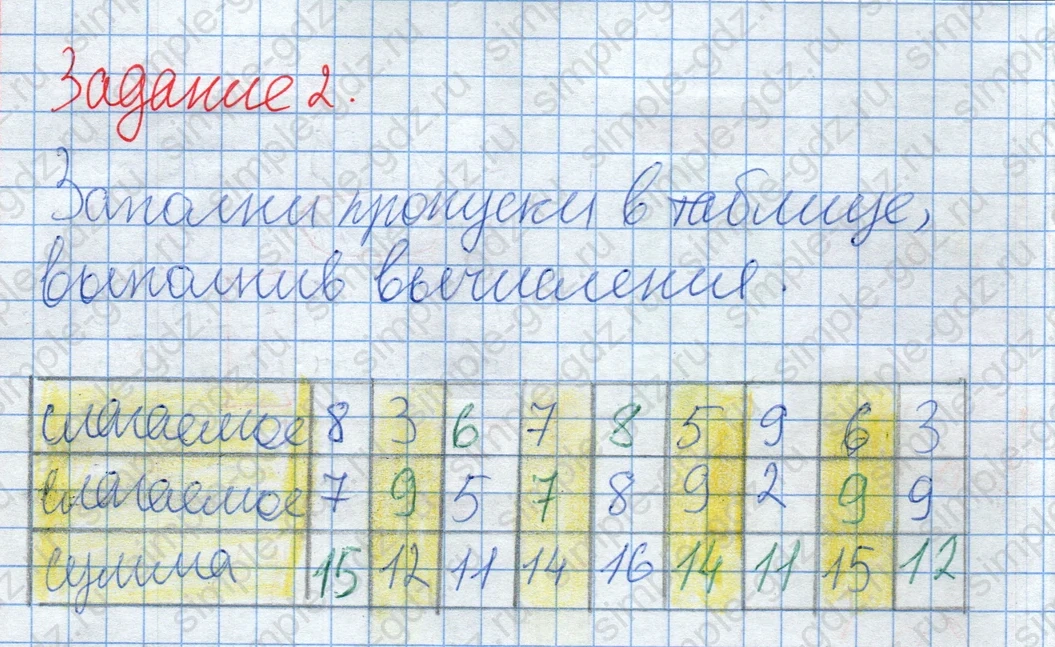 Задание 2.
Заполни пропуски в таблице,
выполнив вычисления.
слагаемое 8 3 6 7 8 5 9 6 3
слагаемое 7 9 5 7 8 9 2 9 9
сумма 15 12 11 14 16 14 11 15 12
simple-gdz.ru